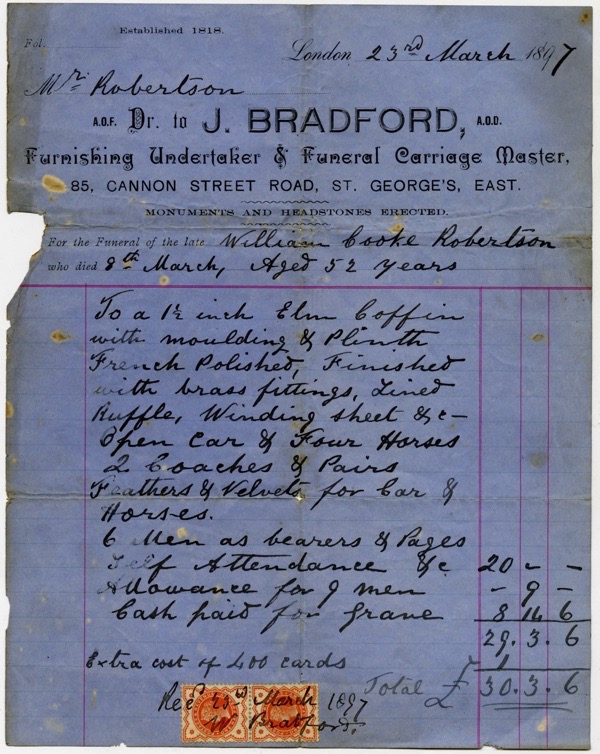 Established 1818.
Fol.
London 23rd March 1897
Mr. Robertson
A.O.F. Dr. to J. BRADFORD, A.O.D.
Furnishing Undertaker & Funeral Carriage Master,
85, CANNON STREET ROAD, ST. GEORGE'S, EAST.
MONUMENTS AND HEADSTONES ERECTED.
For the Funeral of the late William Cooke Robertson
who died 8th March, Aged 52 years
To a 1½ inch Elm Coffin
with moulding & Plinth
French Polished, Finished
with brass fittings, Lined
Ruffle, Winding sheet &c-
Open Car & Four Horses
2 Coaches & Pairs
Feathers & Velvets for Car &
Horses.
6 Men as bearers & Pages
Self Attendance &c 20 - -
Allowance for 9 men - 9 -
Cash paid for Grave 8 14 6
29. 3. 6
Extra cost of 400 cards 1
Total £ 30. 3. 6
Recd 23rd March 1897
W Bradford